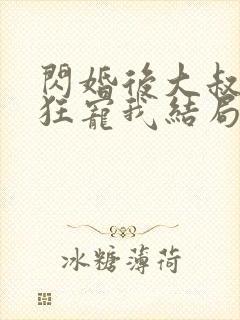 閃婚後大叔
狂寵我結局
冰糖薄荷